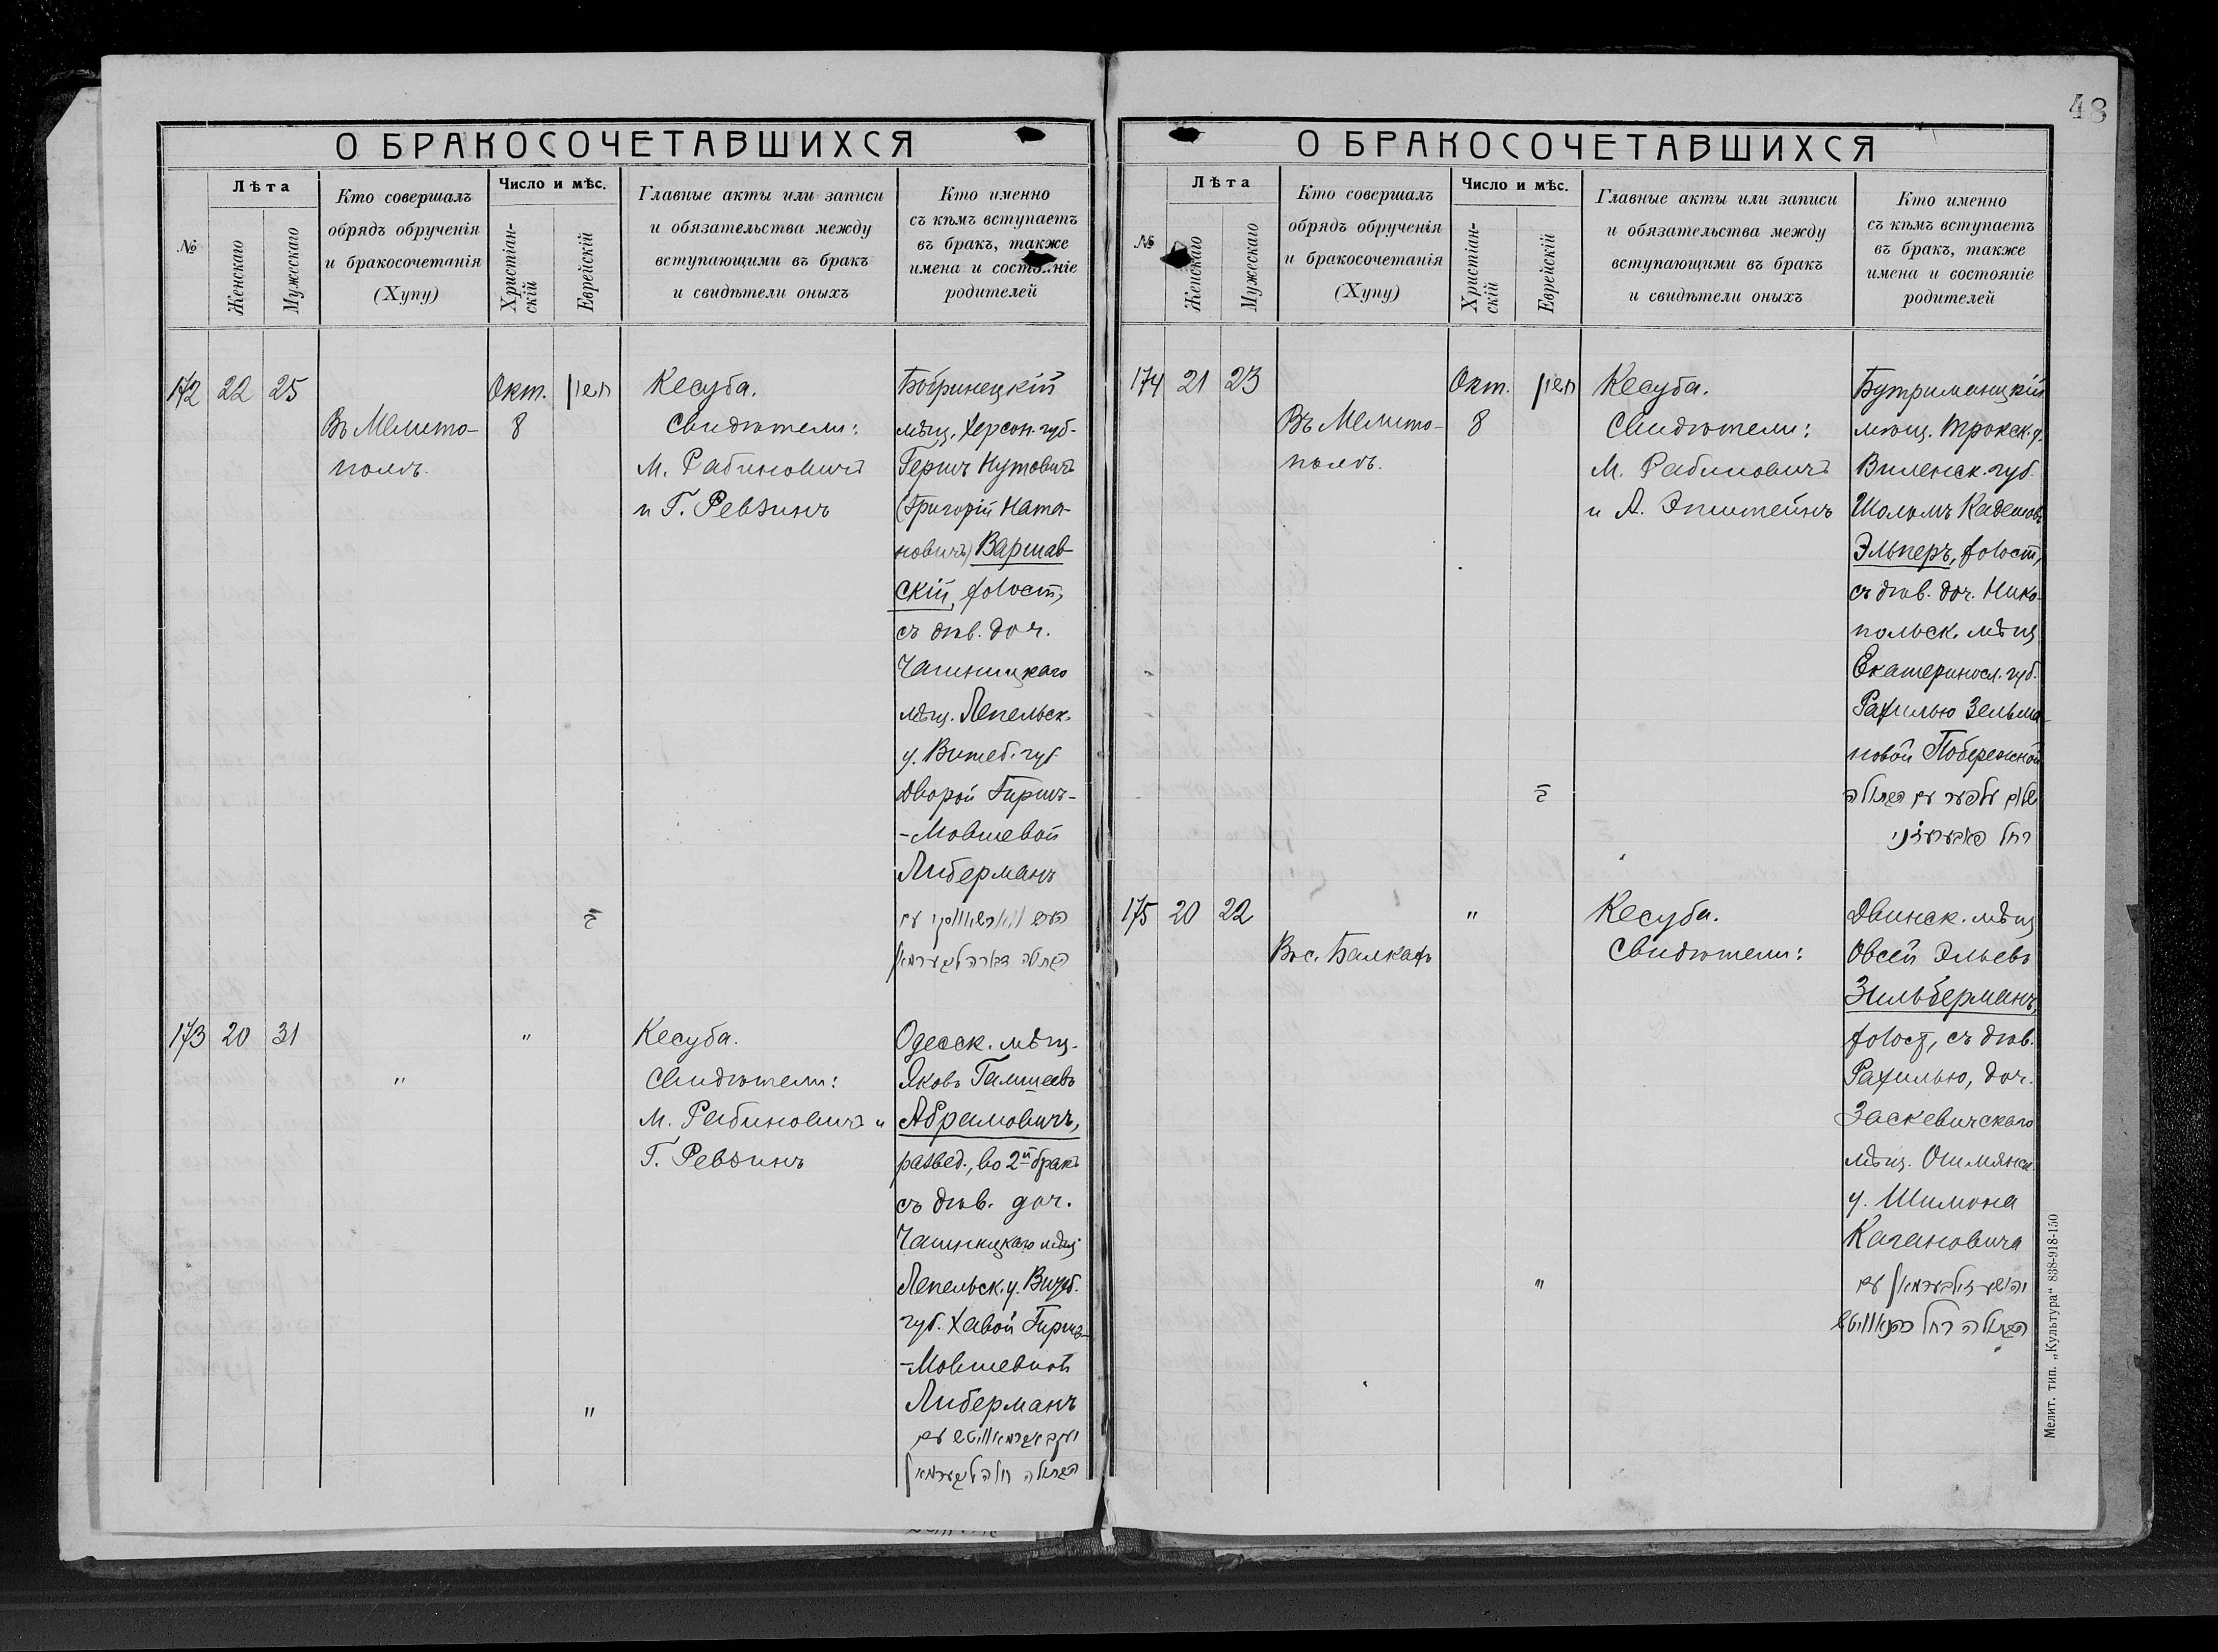 48
О БРАКОСОЧЕТАВШИХСЯ
№
Лѣта
Женскаго
Мужескаго
Кто совершалъ
обрядъ обрученія
и бракосочетанія
(Хупу)
Число и мѣс.
Христіан-
скій
Еврейскій
Главные акты или записи
и обязательства между
вступающими въ бракъ
и свидѣтели оныхъ
Кто именно
съ кѣмъ вступаетъ
въ бракъ, также
имена и состо..ніе
родителей
172 22 25
Въ Мелито-
полѣ.
Окт.
8
Кесуба.
Свидѣтели:
М. Рабиновичъ
и Г. Ревзинъ
Бобринецкій
мѣщ. Херсон. губ.
Гершъ Нутовичъ
(Григорій Ната-
новичъ) Варшав-
скій, холост,
съ дѣв. доч.
Чашницкаго
мѣщ. Лепельск.
у. Витеб. губ.
Дворой Гирш-
-Мовшевой
Либерманъ
173 20 31
"
"
Кесуба.
Свидѣтели:
М. Рабиновичъ и
Г. Ревзинъ
Одесск. мѣщ.
Яковъ
Абрамовичъ,
развед., во 2й бракъ
съ дѣв. доч.
Чашницкаго мѣщ.
Лепельск. у. Витеб.
губ. Хавой Гирш-
-Мовшевной
Либерманъ
"
О БРАКОСОЧЕТАВШИХСЯ
№
Лѣта
Женскаго
Мужескаго
Кто совершалъ
обрядъ обрученія
и бракосочетанія
(Хупу)
Число и мѣс.
Христіан-
скій
Еврейскій
Главные акты или записи
и обязательства между
вступающими въ бракъ
и свидѣтели оныхъ
Кто именно
съ кѣмъ вступаетъ
въ бракъ, также
имена и состояніе
родителей
174 21 23
Въ Мелито-
полѣ.
Окт.
8
Кесуба.
Свидѣтели:
М. Рабиновичъ
и А. Эпштейнъ
Бутриманцкій
мѣщ. Трокск. у.
Виленск. губ.
Шоломъ
Эльперъ, холост,
съ дѣв. доч. Нико-
польск. мѣщ.
Екатеринос. губ.
Рахилью Зельма-
новой Побережской
175 20 22
Въ с. Балкахъ
"
Кесуба.
Свидѣтели:
Двинск. мѣщ.
Овсей Эльевъ
Зильберманъ,
холост, съ дѣв.
Рахилью, доч.
Заскевичскаго
мѣщ. Ошмянск.
у. Шимона
Кагановича
"
Мелит. тип. „Культура“ 838-918-150